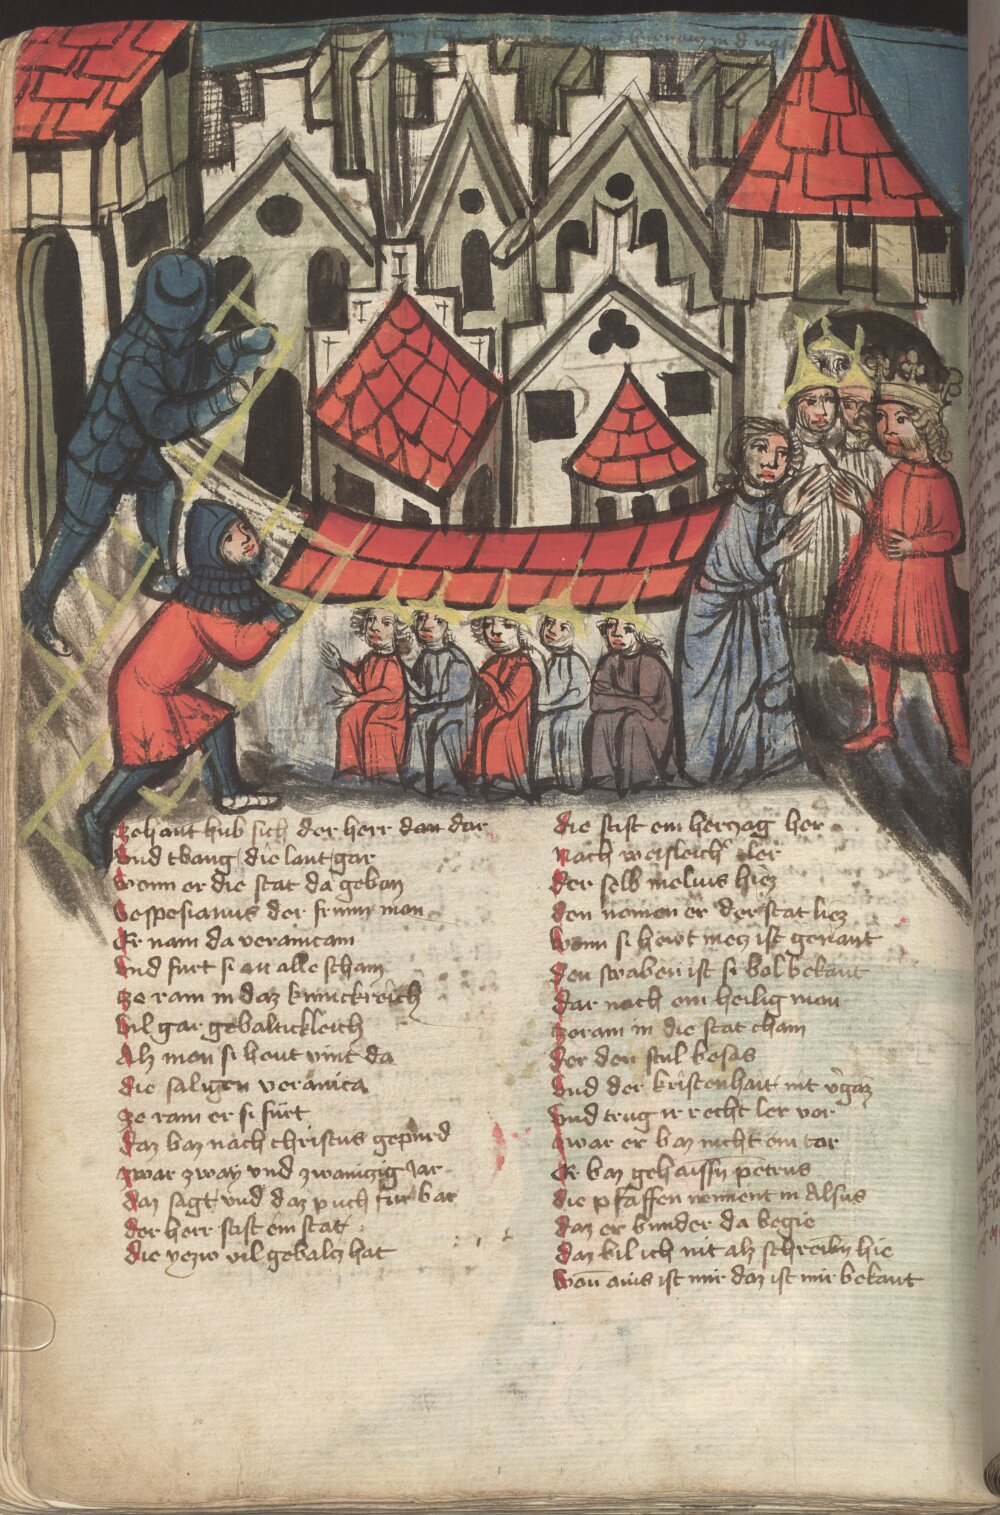 zehant hub sich der herr dan dar
vnd tbang die lant gar
wenn er die stat da geban
vespesianus der frum man
Er nam da veranicam
vnd furt si an alle scham
ze ram in daz kunickreich
vil gar gebaltickleich
Alz man si heut vint da
die saligen veranica
ze ram er si furt
daz baz nach christus gepurd
zwar zway vnd zwainczig Jar
daz sagt vnd daz puch fur bar
der herr stift ein stat
die yezw vil gebalcz hat
die stift ein herczog her
nach weisleicher ler
der selb melius hiez
den namen er der stat liez
wann si hewt mecz ist genant
den swaben ist si bol bekant
dar nach ein heilig man
zoram in die stat cham
der den stul besas
vnd der kristenhait nit vergaz
vnd trug ir recht ler vor
zwar er baz nicht ein tor
Er baz gehaissen petrus
die pfaffen nennent in Alsus
daz er bunder da begie
daz bil ich nit alz schreiben hie
wan ains ist mir daz ist mir bekant